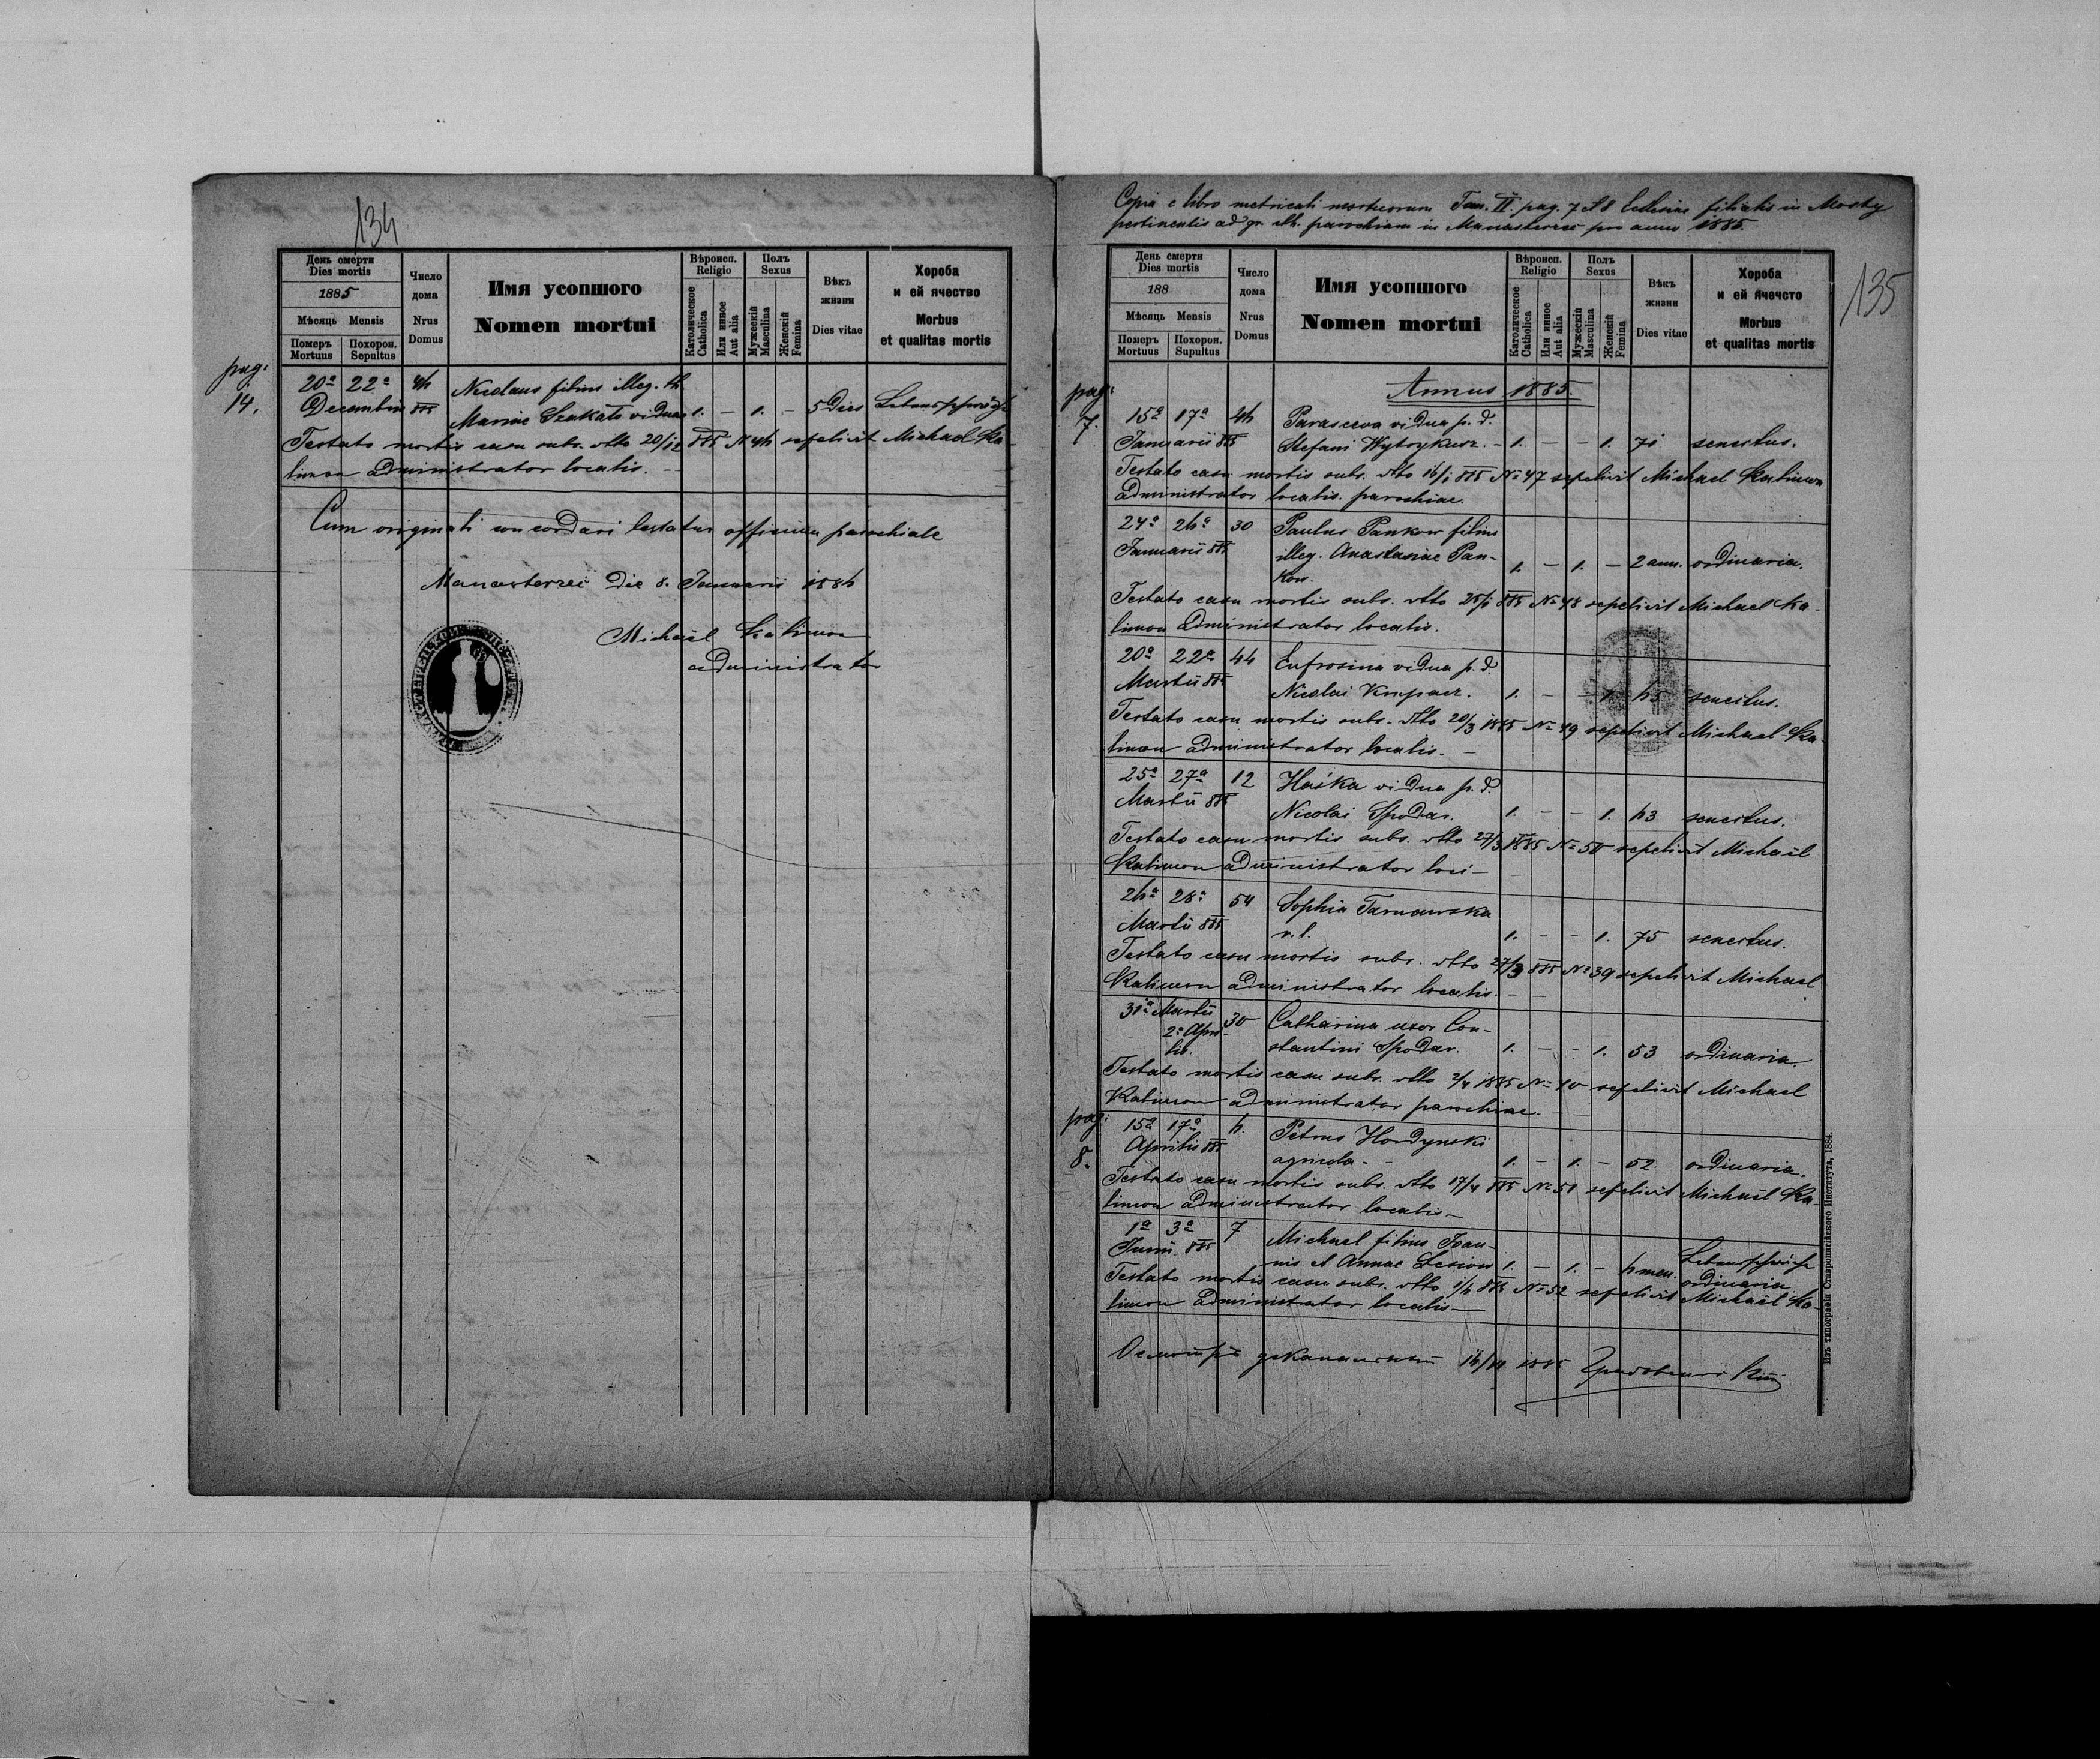 134
День смерти
Dies mortis
1885
Мѣсяць Mensis
Померъ
Mortuus
Похорон.
Sepultus
Число
дома
Nrus
Domus
Имя усопшого
Nomen mortui
Вѣроисп.
Religio
Католическое
Catholica
Или инное
Aut alia
Полъ
Sexus
Мужескій
Masculina
Женскій
Femina
Вѣкъ
жизни
Dies vitae
Хороба
и ей ячество
Morbus
et qualitas mortis
pag:
14.
20a 22a Nicolaus filius illeg. th.
Decembris 885 Mariae viduae 1. – 1. – 5 dies
Testato mortis casu subs. dtto 20/12 885 N sepelivit Michael Ka-
limon administrator localis. –
Cum originali concordari testatur officium parochiale
Manasterzec die 8. Januarii
Michael Kalimon
administrator
Copia e libro metricali mortuorum Tom. II. pag. 7 et 8 Ecclesiae filialis in Mosty
pertinentis ad gr. cth. parochiam in Manasterzec pro anno 1885.
135
День смерти
Dies mortis
188
Мѣсяць Mensis
Померъ
Mortuus
Похорон.
Supultus
Число
дома
Nrus
Domus
Имя усопшого
Nomen mortui
Вѣроисп.
Religio
Католическое
Catholica
Или инное
Aut alia
Полъ
Sexus
Мужескій
Masculina
Женскій
Femina
Вѣкъ
жизни
Dies vitae
Хороба
и ей ячечсто
Morbus
et qualitas mortis
Annus 1885.
pag:
7.
15a 17a Parasceva vidua p. d.
Januarii 885 Stefani Wytrykusz. – 1. – – 1. 71 senectus.
Testato casu mortis subs. dtto 16/1 885 No 47 sepelivit Michael Kalimon
administrator localis parochiae.
24a 26a 30 Paulus Pankow filius
Januarii 885 illeg. Anastasiae Pan-
kow. 1. – 1. – 2 ann. ordinaria.
Testato casu mortis subs. dtto 25/1 885 No 48 sepelivit Michael Ka-
limon administrator localis.
20a 22a 44 Eufrosina vidua p. d.
Martii 885 Nicolai 1. – – 1. 65 senectus.
Testato casu mortis subs. dtto 20/3 1885 No 49 sepelivit Michael Ka-
limon administrator localis. –
25a 27a 12 Haśka vidua p. d.
Martii 885 Nicolai Spodar. 1. – – 1. 63 senectus.
Testato casu mortis subs. dtto 27/3 1885 No 50 sepelivit Michaël
Kalimon administrator loci –
26a 28a 54 Sophia Tarnawska
Martii 885 v. l. 1. – – 1. 75 senectus.
Testato casu mortis subs. dtto 27/3 885 No 39 sepelivit Michael
Kalimon administrator localis. –
31a Martii 30 Catharina uxor Con-
2a Apri-
lis. stantini Spodar. 1. – – 1. 53 ordinaria.
Testato mortis casu subs. dtto 2/4 1885 No 40 sepelivit Michael
Kalimon administrator parochiae.
pag:
8.
15a 17a 6. Petrus Hordynski
Aprilis 885 agricola – 1. – 1. – 52. ordinaria.
Testato casu mortis subs. dtto 17/4 885 No 51 sepelivit Michaël Ka-
limon administrator localis –
1a 3a 7 Michael filius Joan-
885 nis et Annae 1. – 1. – 6 men. ordinaria
Testato mortis casu subs. dtto 885 No 52 sepelivit Michaël Ka-
limon administrator localis –
1885
Изъ типографіи Ставропигійского Института, 1884.